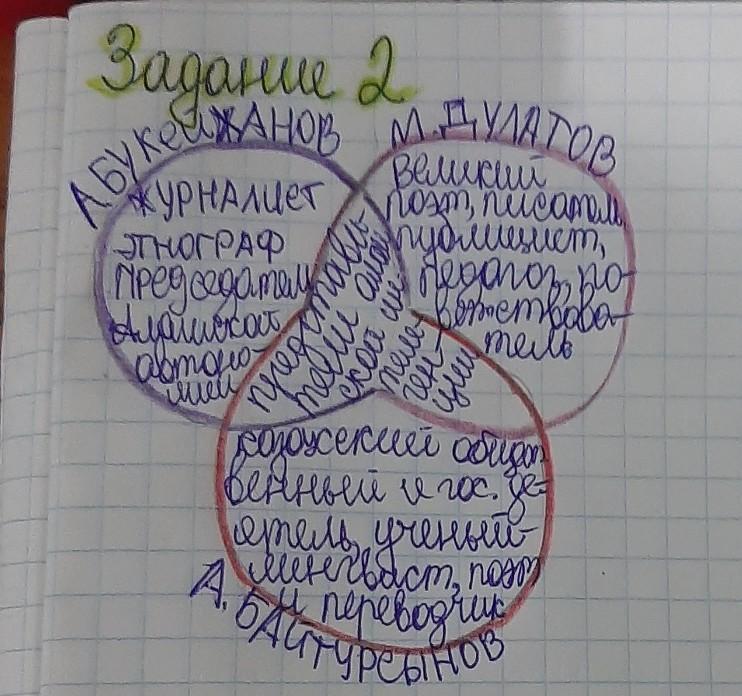 Задание 2
А.БУКЕЙХАНОВ
М.ДУЛАТОВ
ЖУРНАЛИСТ
ЭТНОГРАФ
Председатель
Алашской
автоно-
мией
великий
поэт, писатель
публицист,
педагог, по-
вествова-
тель
представи-
тели алаш-
ской ин-
телле-
ген-
ции
казахский общест
венный и гос. де-
ятель, ученый-
лингвист, поэт
и переводчик
А. БАЙТУРСЫНОВ